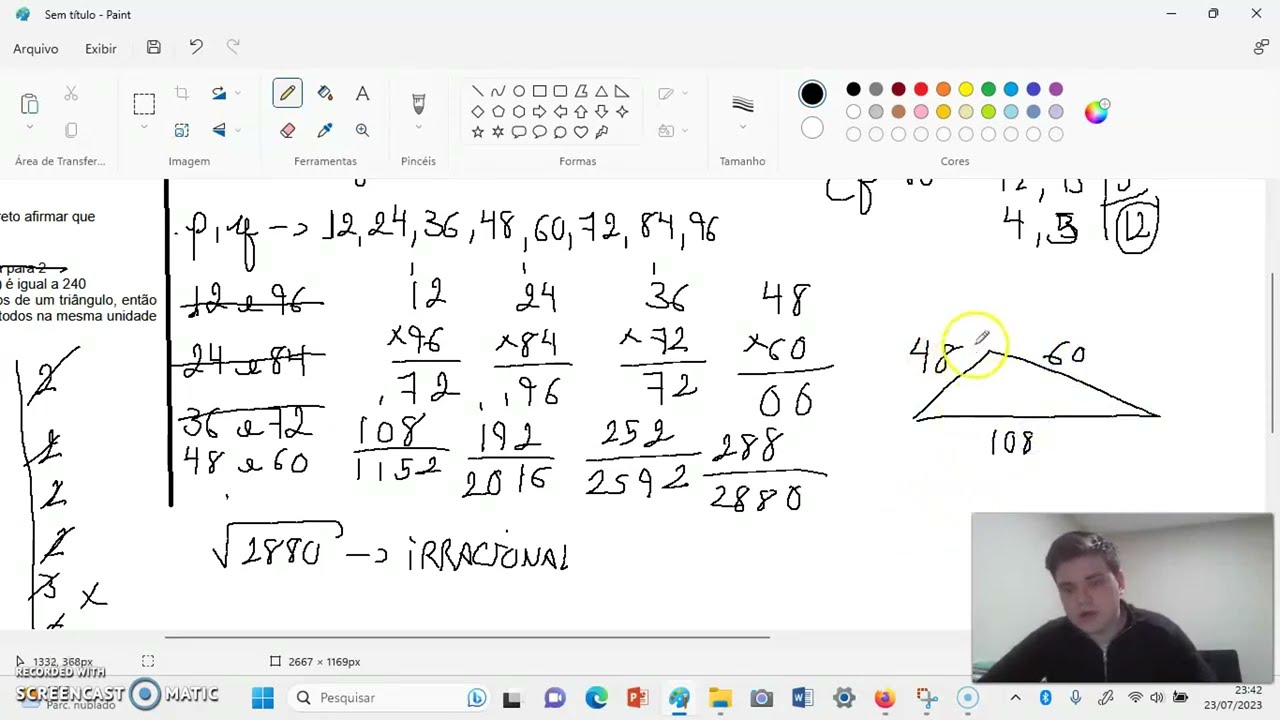 Sem título - Paint
Arquivo Exibir
Área de Transfer... Imagem Ferramentas Pincéis Formas Tamanho Cores
reto afirmar que
para 2
) é igual a 240
os de um triângulo, então
todos na mesma unidade
p, q -> 12, 24, 36, 48, 60, 72, 84, 96
12, 15
4, 5 12
12 e 96
24 e 84
36 e 72
48 e 60
12
×96
72
108
1152
24
×84
196
192
2016
36
×72
72
252
2592
48
×60
00
288
2880
48 60
108
√2880 -> IRRACIONAL
2
2
2
2
3 x
1332, 368px 2667 × 1169px
RECORDED WITH
SCREENCAST MATIC
Parc. nublado
Pesquisar
23:42
23/07/2023